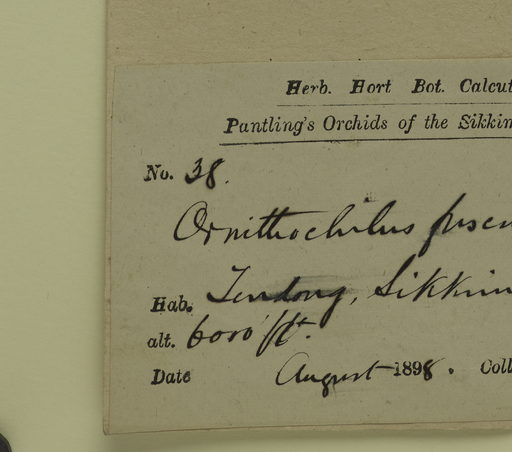 Herb. Hort Bot. Calcut
Pantling's Orchids of the Sikkim
No. 38.
Ornithochilus fuscu
Hab. Tendong, Sikkim
alt. 6000 ft.
Date August 1898. Coll